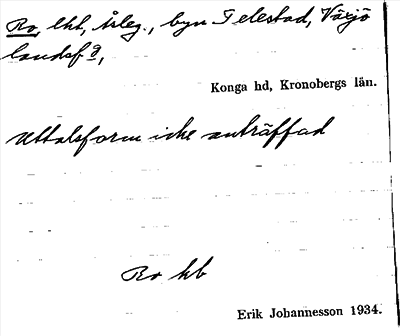 Ro, lht, åsleg., byn Telestad, Växjö
landsf d,
Konga hd, Kronobergs län.
Uttalsform icke anträffad
Ro hb
Erik Johannesson 1934.